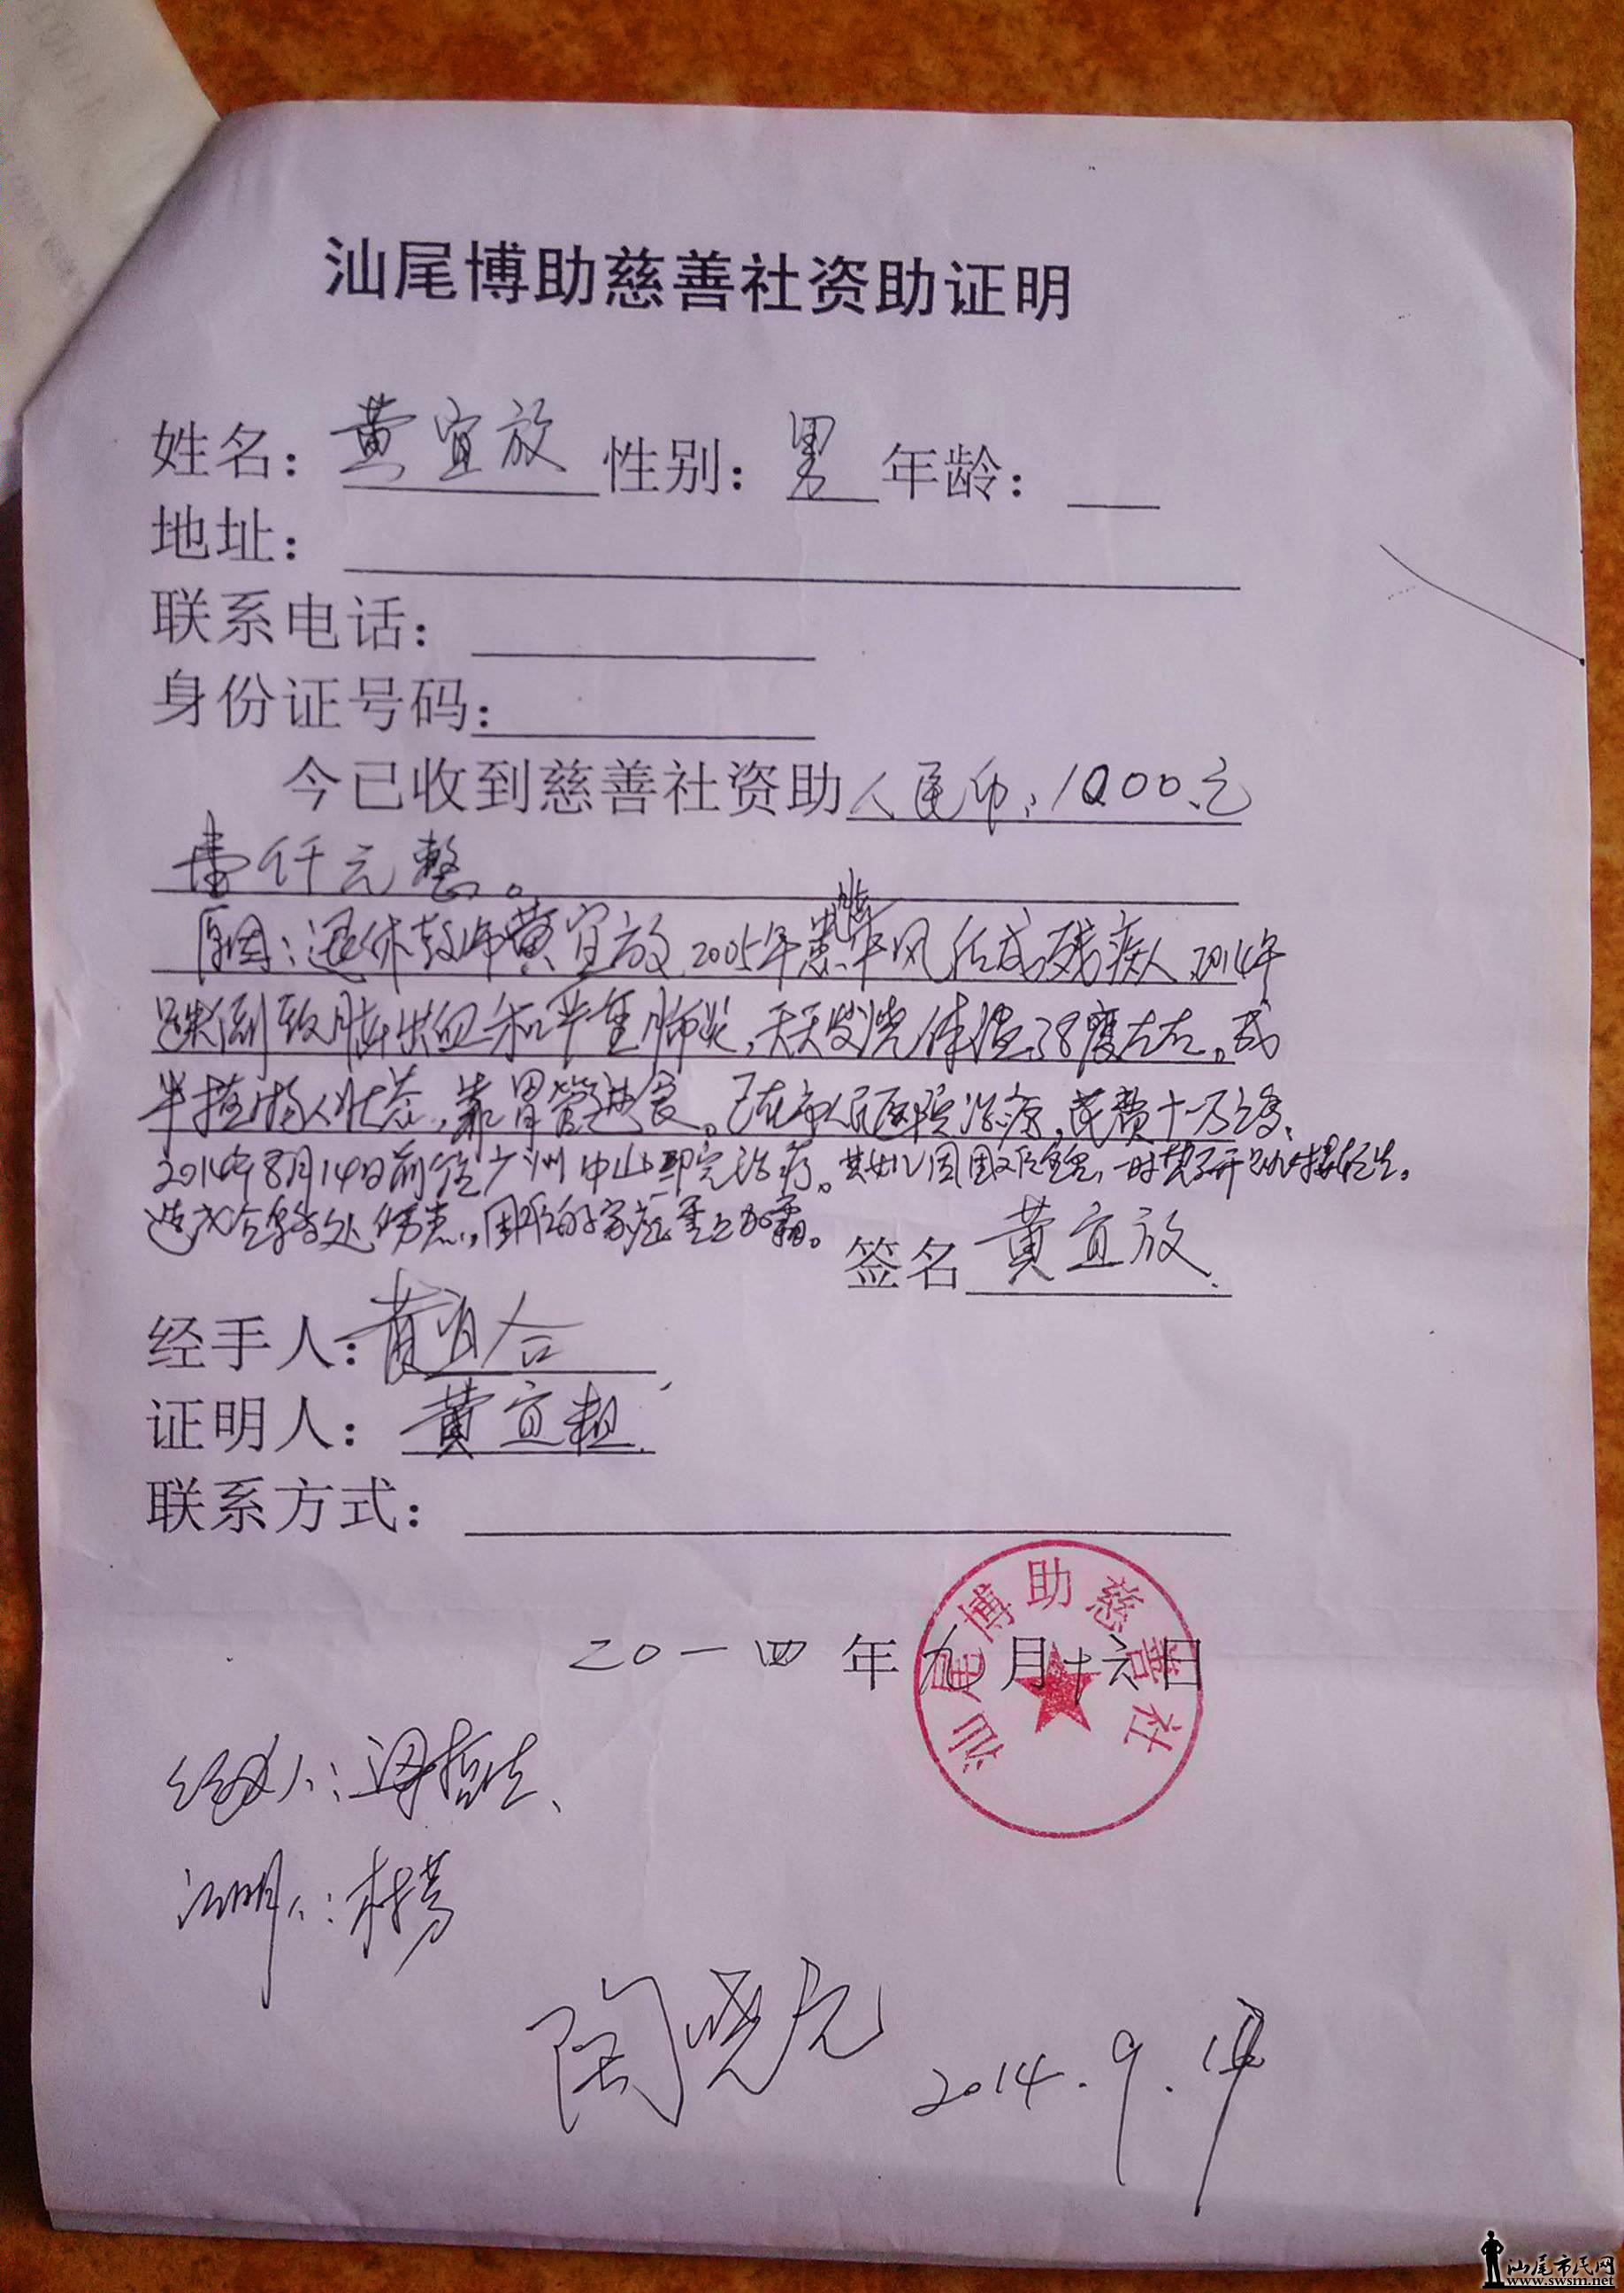 汕尾博助慈善社资助证明
姓名：黄宜放 性别：男 年龄：
地址：
联系电话：
身份证号码：
今已收到慈善社资助人民币：1000元
壹仟元整。
原因：退休教师黄宜放2005年患中风 后成残疾人，2014年
跌倒致脑出血和严重肺炎，天天发烧体温38度左右。成
半植物人状态，靠胃管进食。已在市人民医院治疗，花费十一万多，
2014年8月14日前往广州中山 治疗。其女儿因
造成 ，困难的家庭雪上加霜。
签名 黄宜放
经手人：黄宜合
证明人：黄宜粗
联系方式：
二〇一四年九月十六日
汕尾博助慈善社
经办人：
证明人：林芳
陶晓 2014.9.
汕尾市民网
www.swsm.net